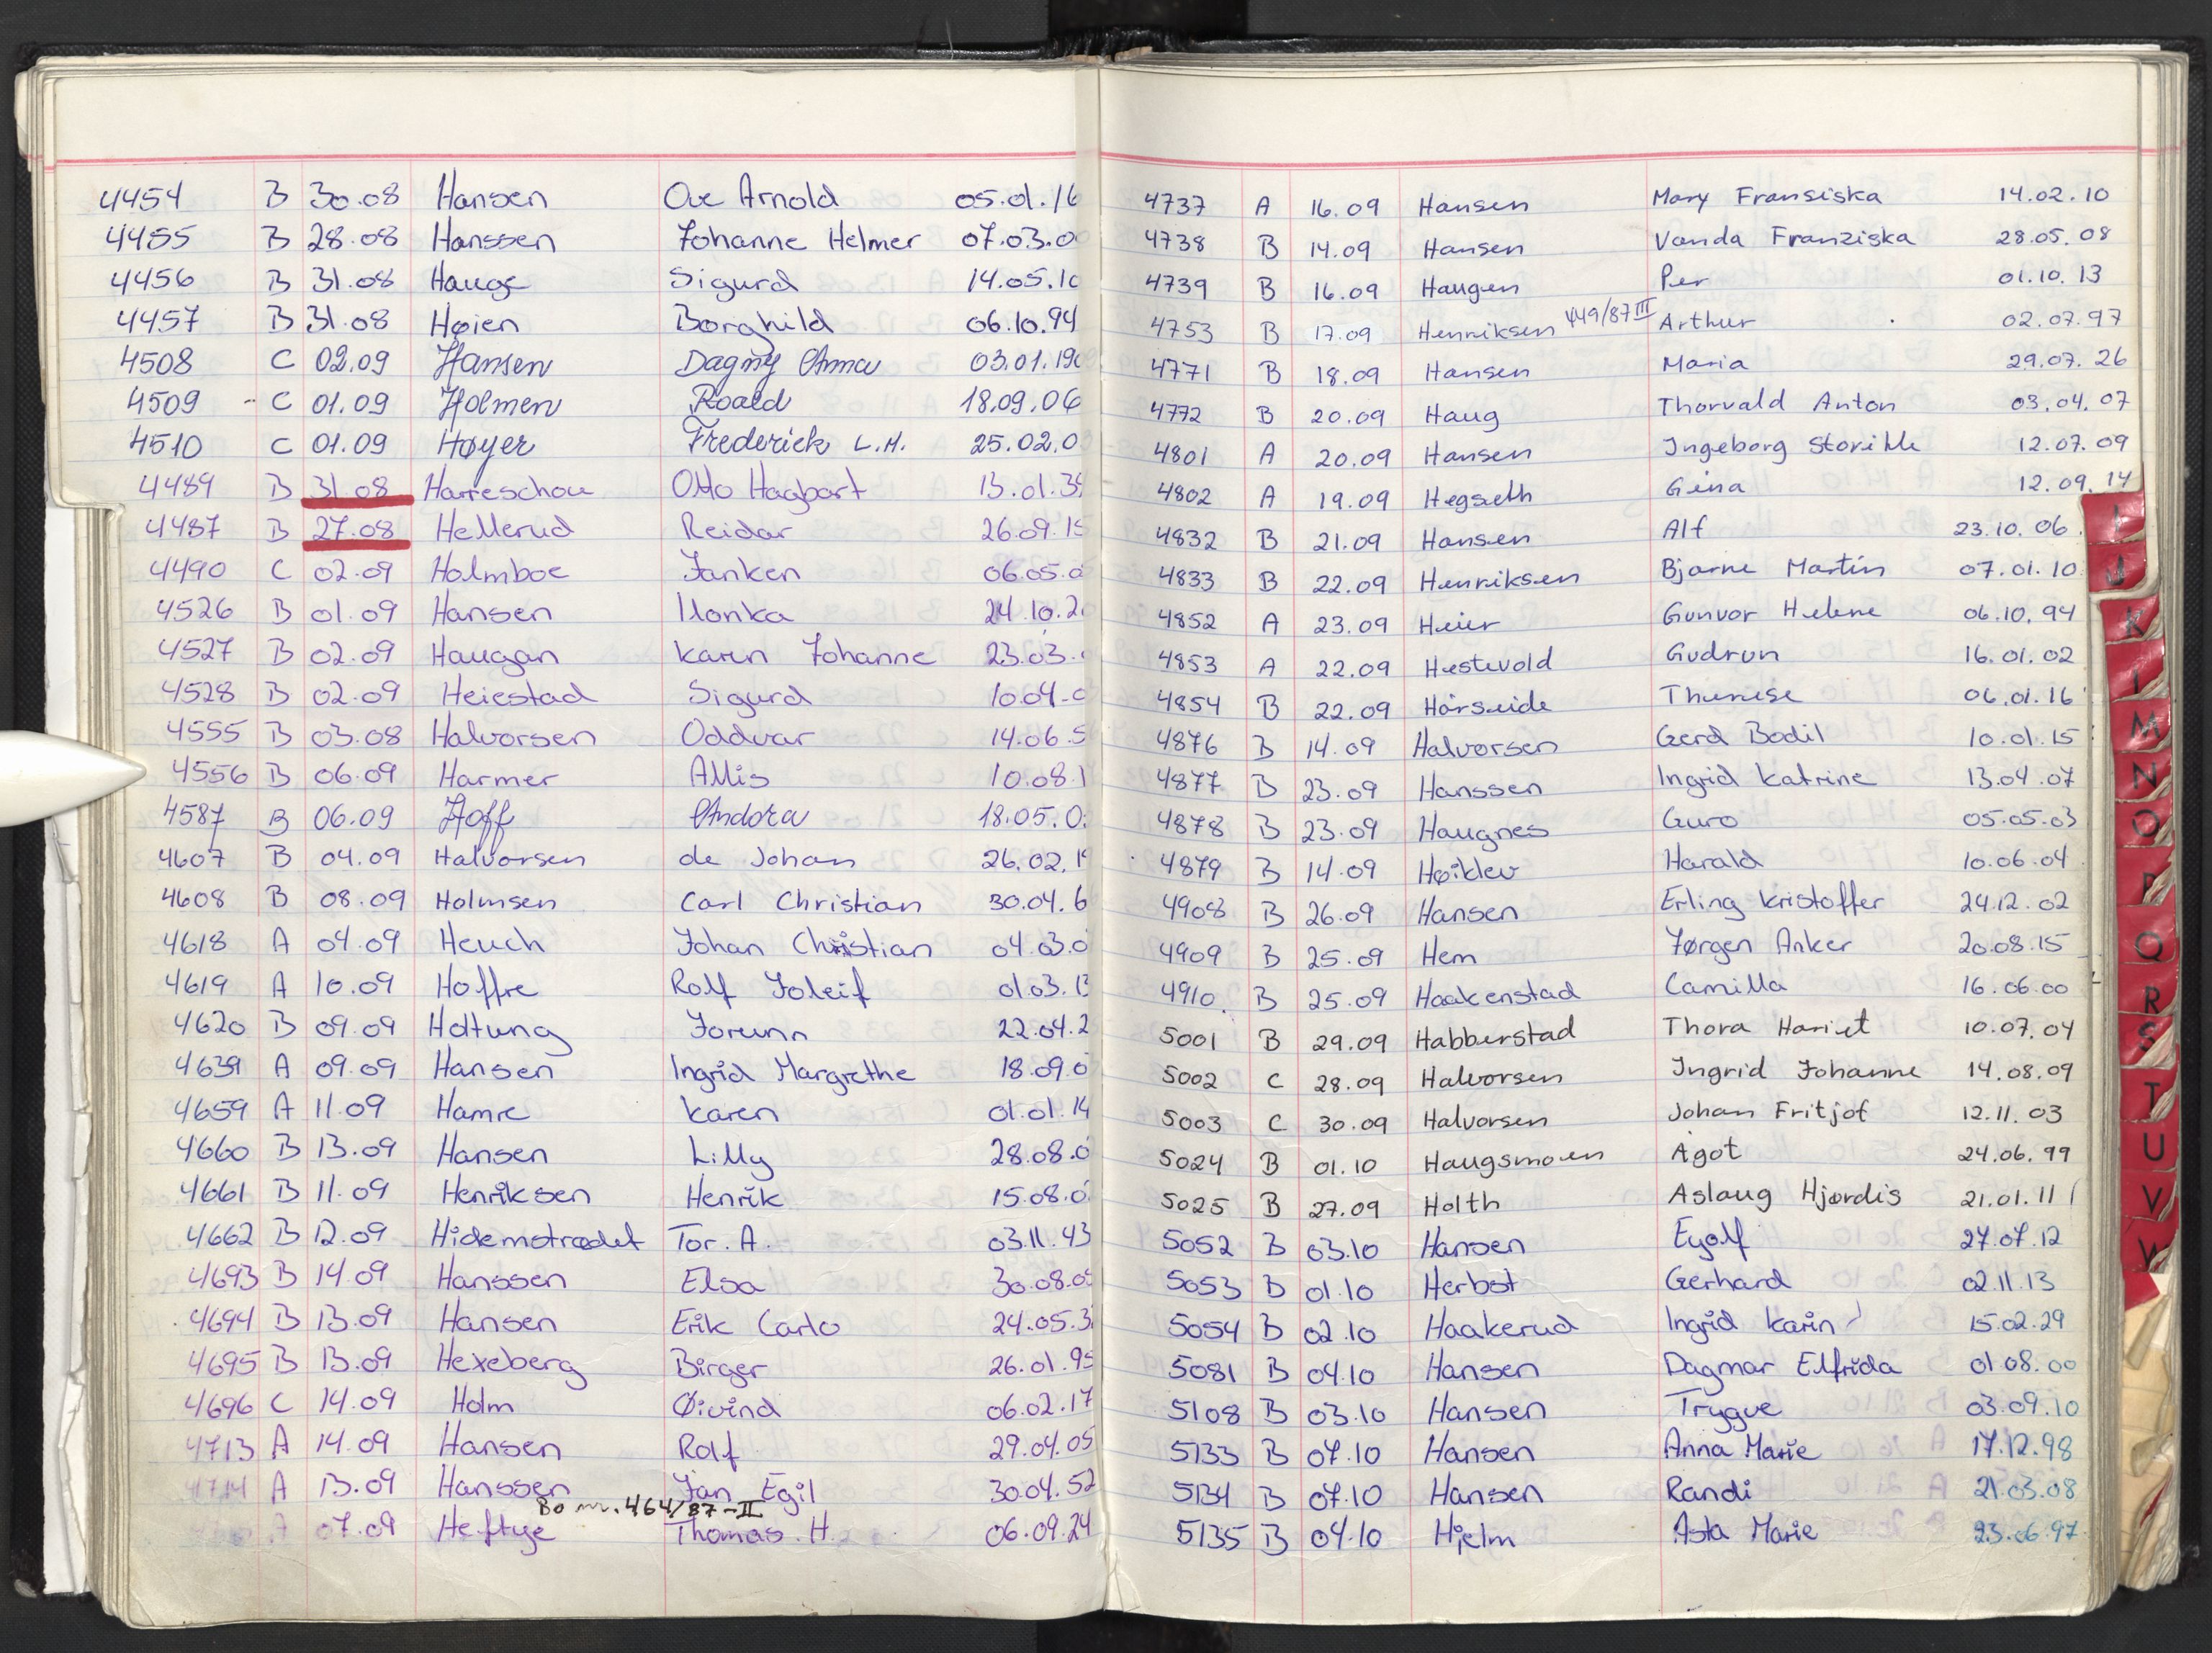 4454 B 30.08 Hansen Ove Arnold 05.01.16
4455 B 28.08 Hanssen Johanne Helmer 07.03.0
4456 B 31.08 Hauge Sigurd 14.05.10
4457 B 31.08 Høien Borghild 06.10.94
4508 C 02.09 Hansen Dagny Anna 03.01.190
4509 C 01.09 Holmen Roald 18.09.06
4510 C 01.09 Høyer Frederick L.H. 25.02.0
4489 B 31.08 Harreschou Otto Hagbart 13.01.35
4487 B 27.08 Hellerud Reidar 26.09.15
4490 C 02.09 Holmboe Janken 06.05.0
4526 B 01.09 Hansen Ilonka 24.10.2
4527 B 02.09 Haugan Karen Johanne 23.03.
4528 B 02.09 Heiestad Sigurd 10.04.0
4555 B 03.08 Halvorsen Oddvar 14.06.5
4556 B 06.09 Harmer Allis 10.08.1
4587 B 06.09 Hoff Andora 18.05.0
4607 B 04.09 Halvorsen de Johan 26.02.1
4608 B 08.09 Holmsen Carl Christian 30.04.6
4618 A 04.09 Heuch Johan Christian 04.03.0
4619 A 10.09 Hoffre Rolf Joleif 01.03.13
4620 B 09.09 Holtung Jorunn 22.04.2
4639 A 09.09 Hansen Ingrid Margrethe 18.09.0
4659 A 11.09 Hamre Karen 01.01.14
4660 B 13.09 Hansen Lilly 28.08.0
4661 B 11.09 Henriksen Henrik 15.08.0
4662 B 12.09 Hidemstrædet Tor. A. 03.11.43
4693 B 14.09 Hanssen Elsa 30.08.0
4694 B 13.09 Hansen Erik Carlo 24.05.3
4695 B 13.09 Hexeberg Birger 26.01.95
4696 C 14.09 Holm Øivind 06.02.17
4713 A 14.09 Hansen Rolf 29.04.05
4714 A 13.09 Hanssen Jan Egil 30.04.52
Bo nr. 464/87-II
A 07.09 Heftye Thomas. H. 06.09.24
4737 A 16.09 Hansen Mary Fransiska 14.02.10
4738 B 14.09 Hansen Vanda Franziska 28.05.08
4739 B 16.09 Haugen Per 01.10.13
4753 B 17.09 Henriksen 449/87 III Arthur 02.07.97
4771 B 18.09 Hansen Maria 29.07.26
4772 B 20.09 Haug Thorvald Anton 03.04.07
4801 A 20.09 Hansen Ingeborg 12.07.09
4802 A 19.09 Hegseth Gina 12.09.14
4832 B 21.09 Hansen Alf 23.10.06
4833 B 22.09 Henriksen Bjarne Martin 07.01.10
4852 A 23.09 Heier Gunvor Helene 06.10.94
4853 A 22.09 Hestevold Gudrun 16.01.02
4854 B 22.09 Hårseide Therese 06.01.16
4876 B 14.09 Halvorsen Gerd Bodil 10.01.15
4877 B 23.09 Hanssen Ingrid Katrine 13.04.07
4878 B 23.09 Haugnes Guro 05.05.03
4879 B 14.09 Høiklev Harald 10.06.04
4908 B 26.09 Hansen Erling Kristoffer 24.12.02
4909 B 25.09 Hem Jørgen Anker 20.08.15
4910. B 25.09 Haakenstad Camilla 16.06.00
5001 B 29.09 Habberstad Thora Hariet 10.07.04
5002 C 28.09 Halvorsen Ingrid Johanne 14.08.09
5003 C 30.09 Halvorsen Johan Fritjof 12.11.03
5024 B 01.10 Haugsmoen Agot 24.06.99
5025 B 27.09 Holth Aslaug Hjørdis 21.01.11
5052 B 03.10 Hansen Eyolf 27.07.12
5053 B 01.10 Herbst Gerhard 02.11.13
5054 B 02.10 Haakerud Ingrid Karin 15.02.29
5081 B 04.10 Hansen Dagmar Elfrida 01.08.00
5108 B 03.10 Hansen Trygve 03.09.10
5133 B 07.10 Hansen Anna Marie 17.12.98
5134 B 07.10 Hansen Randi 21.03.08
5135 B 04.10 Hjelm Asta Marie 23.06.97
I
J
K
M
N
O
P
Q
R
S
T
U
V
W